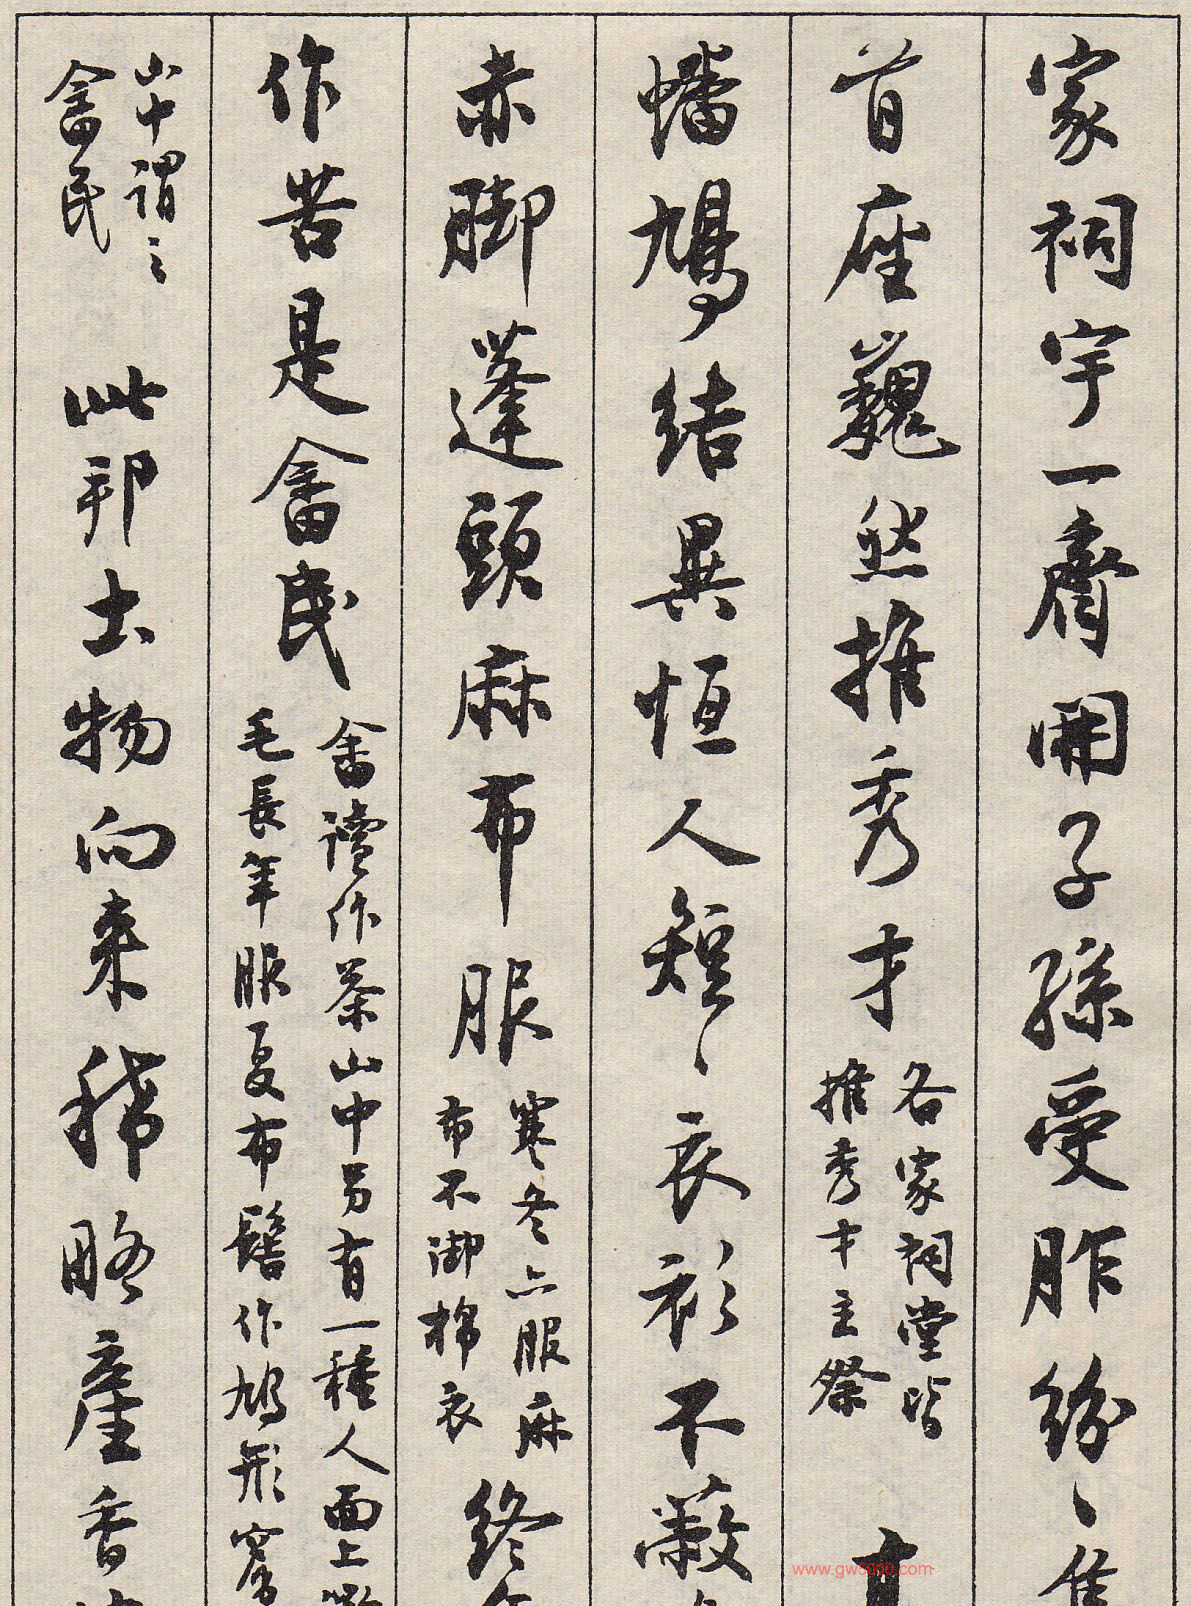 家祠宇一齊開子孫受胙紛、隹
首座巍然推秀才
各家祠堂皆
推秀才主祭
蟠鳩結異恒人短、衣衫不蔽
赤脚蓬頭麻布服
寒冬亦服麻
布不御棉衣
終年
作苦是畲民
畲讀作茶山中另有一種人面上
毛長年服夏布髻作鳩形窩
山中謂之
畲民
此邦土物向来稀略產香
www.gw5000.com